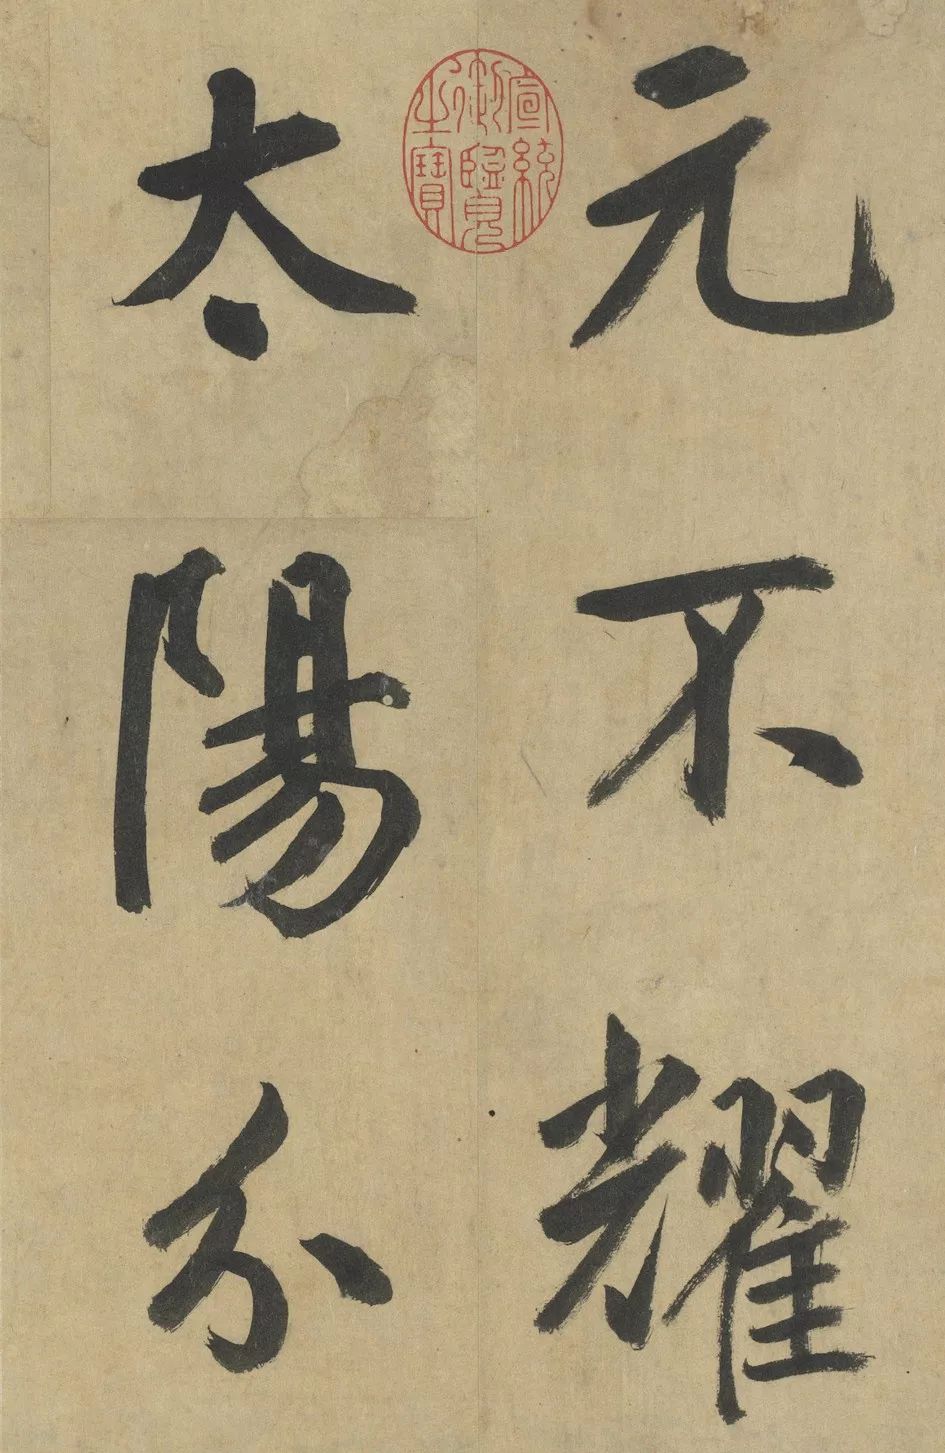 元不耀
太陽分
宣統御覽之寶